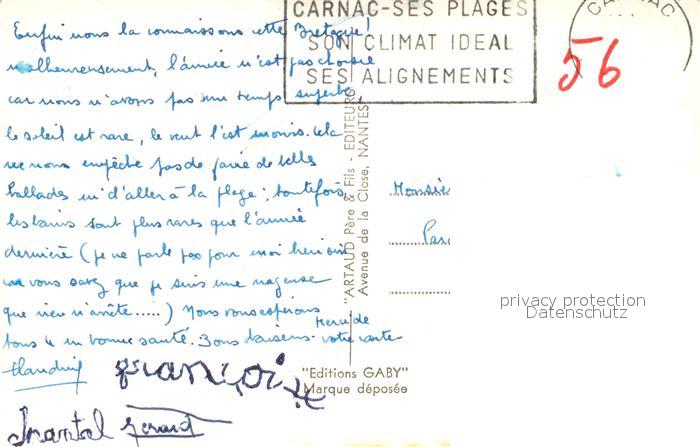 CARNAC-SES PLAGES
SON CLIMAT IDEAL
SES ALIGNEMENTS
CARNAC
56
Enfin nous la connaissons cette Bretagne!
malheureusement, l'année n'est pas choisie
car nous n'avons pas un temps superbe,
le soleil est rare, le vent l'est moins. Cela
ne nous empêche pas de faire de belles
ballades ni d'aller à la plage; toutefois,
les bains sont plus rares que l'année
dernière (je ne parle pas pour moi
car vous savez que je suis une nageuse
que rien n'arrête.....) Nous vous espérons
tous 4 en bonne santé. Bons baisers.
Merci de
votre carte
Claudine
françoise
Chantal Gérard
"ARTAUD Père & Fils - EDITEURS
Avenue de la Close, NANTES
"Editions GABY"
Marque déposée
Monsie
Par
privacy protection
Datenschutz